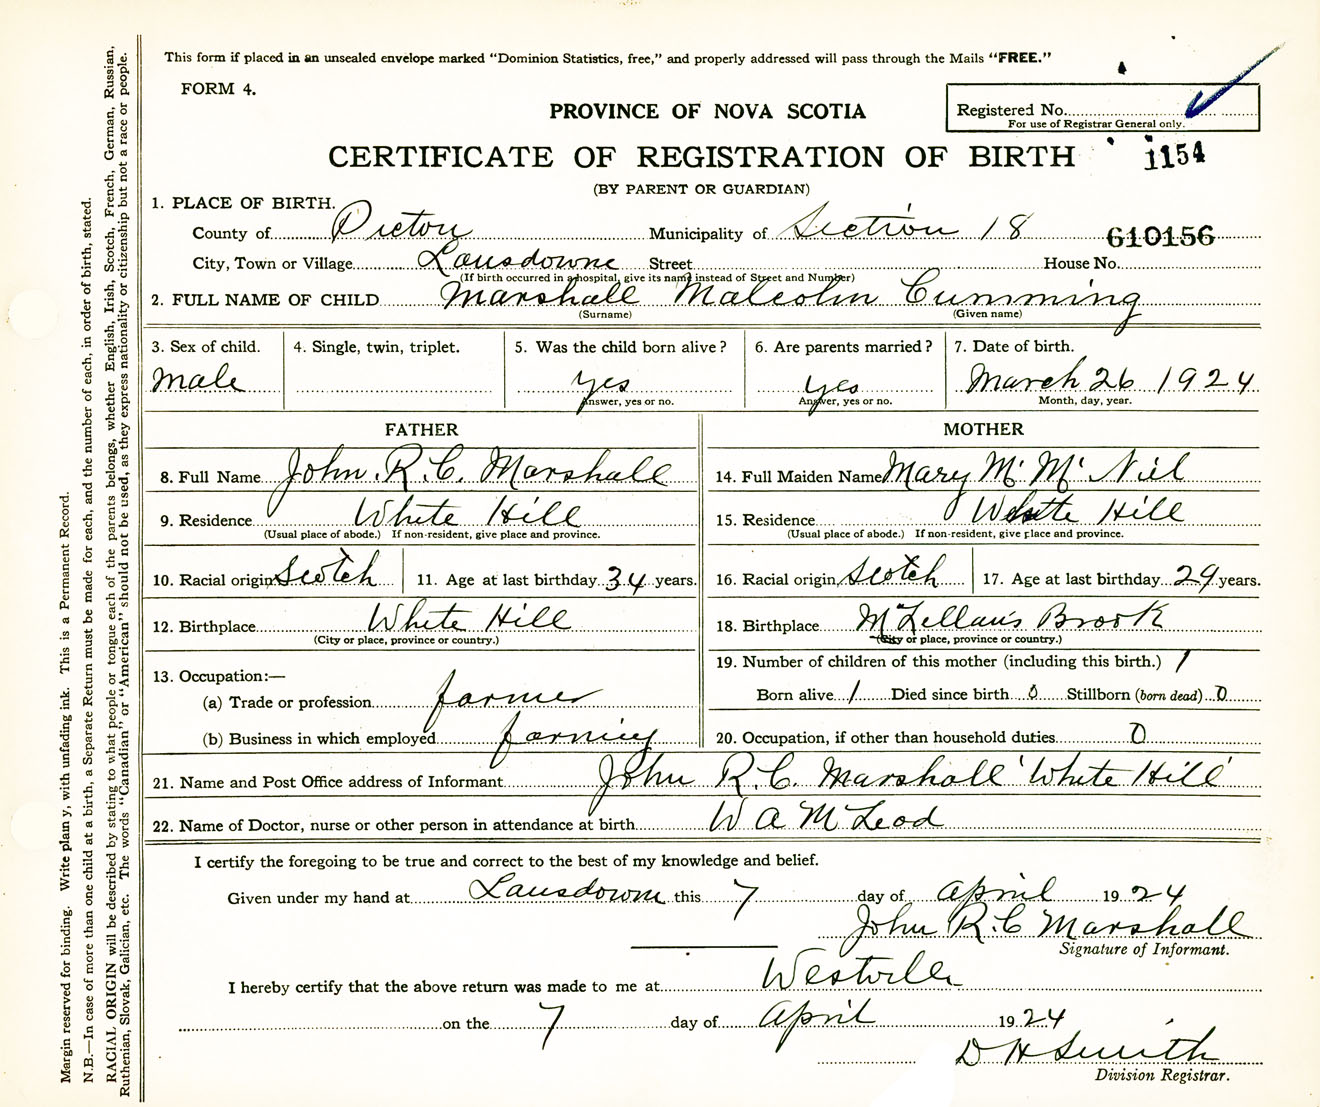 This form if placed in an unsealed envelope marked "Dominion Statistics, free," and properly addressed will pass through the Mails "FREE."
FORM 4.
PROVINCE OF NOVA SCOTIA
Registered No.
For use of Registrar General only.
CERTIFICATE OF REGISTRATION OF BIRTH
1154
(BY PARENT OR GUARDIAN)
1. PLACE OF BIRTH.
County of Pictou Municipality of Section 18
610156
City, Town or Village Lansdowne Street House No.
(If birth occurred in a hospital, give its name instead of Street and Number)
2. FULL NAME OF CHILD Marshall Malcolm Cumming
(Surname) (Given name)
3. Sex of child. 4. Single, twin, triplet. 5. Was the child born alive? 6. Are parents married? 7. Date of birth.
Male yes yes March 26 1924
Answer, yes or no. Answer, yes or no. Month, day, year.
FATHER MOTHER
8. Full Name John. R. C. Marshall 14. Full Maiden Name Mary Mc Mc Niel
9. Residence White Hill 15. Residence White Hill
(Usual place of abode.) If non-resident, give place and province. (Usual place of abode.) If non-resident, give place and province.
10. Racial origin Scotch 11. Age at last birthday 34 years. 16. Racial origin Scotch 17. Age at last birthday 29 years.
12. Birthplace White Hill 18. Birthplace McLellan's Brook
(City or place, province or country.) (City or place, province or country.)
19. Number of children of this mother (including this birth.) 1
13. Occupation:—
(a) Trade or profession farmer Born alive 1 Died since birth 0 Stillborn (born dead) 0
(b) Business in which employed farming 20. Occupation, if other than household duties 0
21. Name and Post Office address of Informant John R. C. Marshall White Hill
22. Name of Doctor, nurse or other person in attendance at birth W A McLeod
I certify the foregoing to be true and correct to the best of my knowledge and belief.
Given under my hand at Lansdowne this 7 day of April 1924
John R. C Marshall
Signature of Informant.
I hereby certify that the above return was made to me at Westville
on the 7 day of April 1924
D H Smith
Division Registrar.
Margin reserved for binding. Write plain y, with unfading ink. This is a Permanent Record.
N.B.—In case of more than one child at a birth, a Separate Return must be made for each, and the number of each, in order of birth, stated.
RACIAL ORIGIN will be described by stating to what people or tongue each of the parents belongs, whether English, Irish, Scotch, French, German, Russian,
Ruthenian, Slovak, Galician, etc. The words "Canadian" or "American" should not be used, as they express nationality or citizenship but not a race or people.